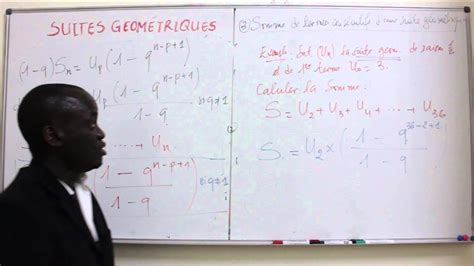 SUITES GEOMÉTRIQUES
(1-q) Sn = Up (1 - q^(n-p+1))
Up (1 - q^(n-p+1)) / (1 - q)
si q≠1
+ ··· + Un
1 - q^(n-p+1) / (1 - q) si q≠1
Somme de termes consécutifs d'une suite géométrique
Exemple: Soit (Un) la suite géom. de raison
et de 1er terme U0 = 3.
Calculer la somme:
S = U2 + U3 + U4 + ··· + U36
S = U2 × (1 - q^(36-2+1) / (1 - q))